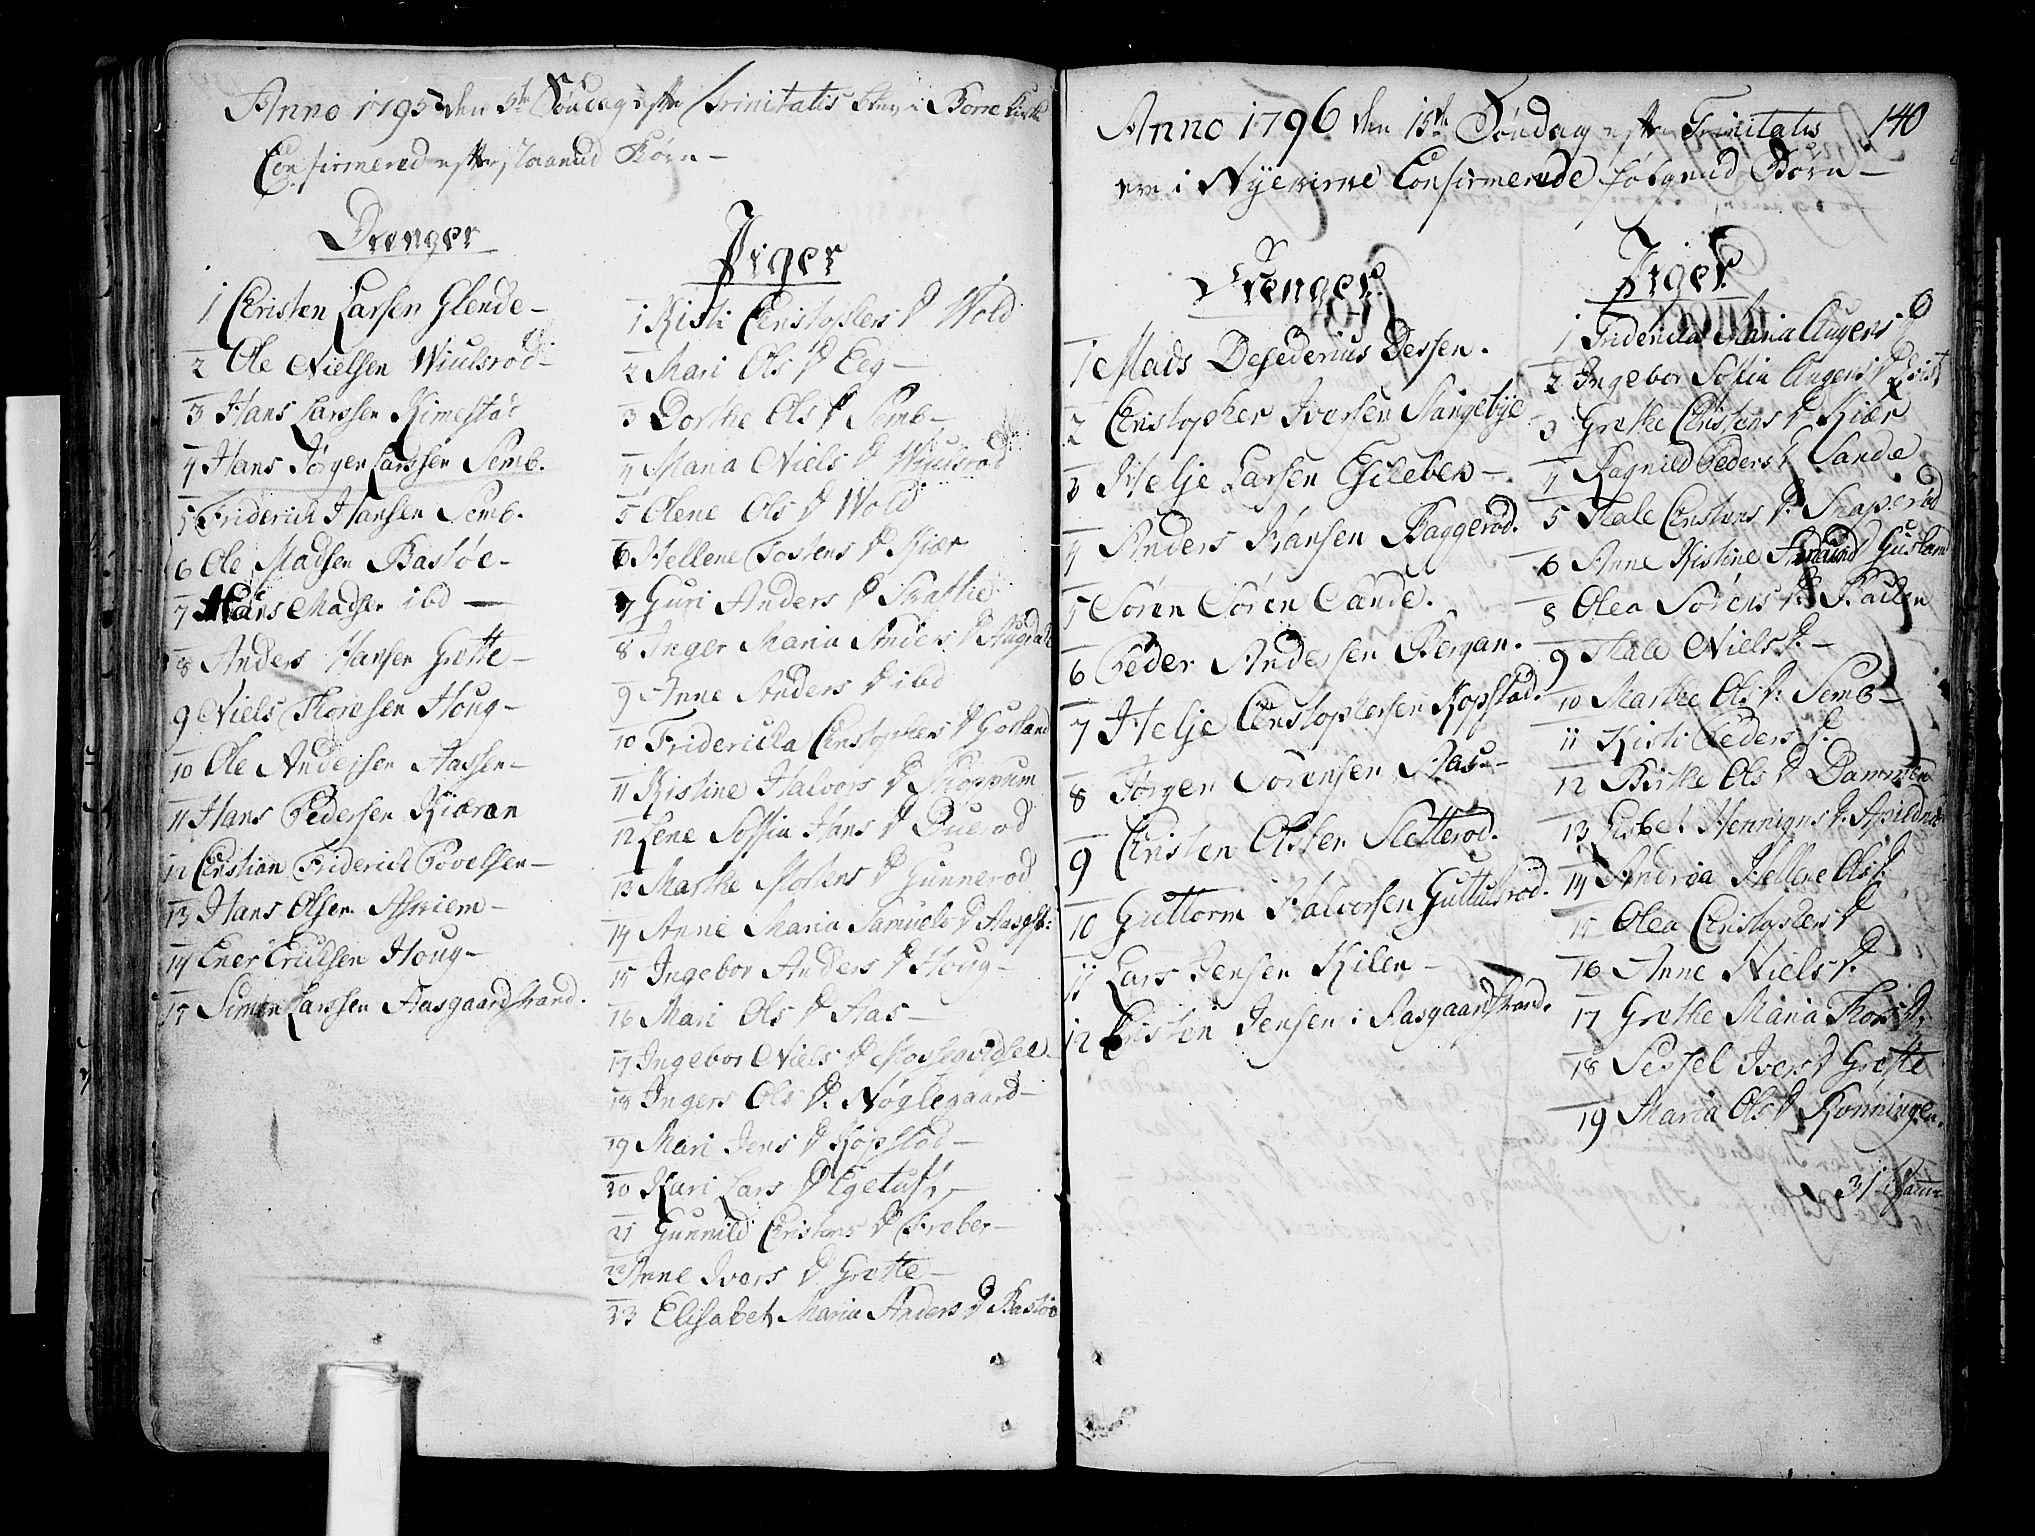 Anno 1795 den 5te Søndag efter Trinitatis blev i Borre Kirke
Confirmered efterstaaende Børn -
Drenger
1 Christen Larsen Glende -
2 Ole Nielsen Wiulsrød -
3 Hans Larssen Kimestad
4 Hans Jørgen Larssen Semb.
5 Friderich Hansen Semb.
6 Ole Madsen Bastøe -
7 Hans Madsen ibd -
8 Anders Hansen Grette -
9 Niels Thoresen Houg -
10 Ole Andersen Aassen -
11 Hans Pedersen Kiæran
12 Christian Friderich Povelsen -
13 Hans Olsen Askiem -
14 Ener Erichsen Houg -
15 Simon Larssen Aasgaardstrand.
Piger
1 Kisti Christophers D Wold
2 Mari Ols D Eeg -
3 Dorthe Ols D Semb -
4 Maria Niels D Wiulsrød
5 Olene Ols D Wold
6 Hellene Tostens D Kiær
7 Guri Anders D
8 Inger Maria Anders D
9 Anne Anders D ibd
10 Fridericka Christophers D Gosland
11 Kistine Halvors D Skoppum
12 Lene Soffia Hans D Buerød
13 Marthe Mortens D Gunnerød
14 Anne Maria Samuels D Aasgst:
15 Ingebor Anders D Houg -
16 Mari Ols D Aas -
17 Ingebor Niels D
18 Ingers Ols D. Nøglegaard -
19 Mari Jens D Kopstad -
20 Kari Lars D Egetuft -
21 Gunnild Christens D Freber -
22 Anne Ivers D Grette -
23 Elisabet Maria Anders D Bastøe
140
Anno 1796 den 15de Søndag efter Trinitatis
ere i Nyekirke Confirmerede følgende Børn -
Drenger
1 Mads Desederius Dessen.
2 Christopher Iversen Slangebye
3 Helje Larsen Esileben -
4 Anders Hansen Baggerød.
5 Søren Søren Sande.
6 Peder Andersen Bergan.
7 Helje Christophersen Kopstad.
8 Jørgen Sørensen Aas -
9 Christen Olsen Sletterød.
10 Guttorm Halvorsen Guttulsrød.
11 Lars Jensen Kilen -
12 Kisten Jensen i Aasgaardstrand.
Piger
1 Fridericka Maria Augers D
2 Ingebor Sofia Augers D
3 Grethe Christens D Kiær
4 Ragnild Peders D Sande
5 Male Christens D.
6 Anne Kistine D Gusland
8 Olea Sørens D.
9 Male Niels D. -
10 Marthe Ols D. Semb -
11 Kisti Peders D.
12 Birthe Ols D Dammen
13 Lisbet Hennings D.
14 Andrea Hellene Ols D.
15 Olea Christophers D
16 Anne Niels D.
17 Grethe Maria Thors D.
18 Sessel Ivers D Grette
19 Maria Ols D Ronningen.
31